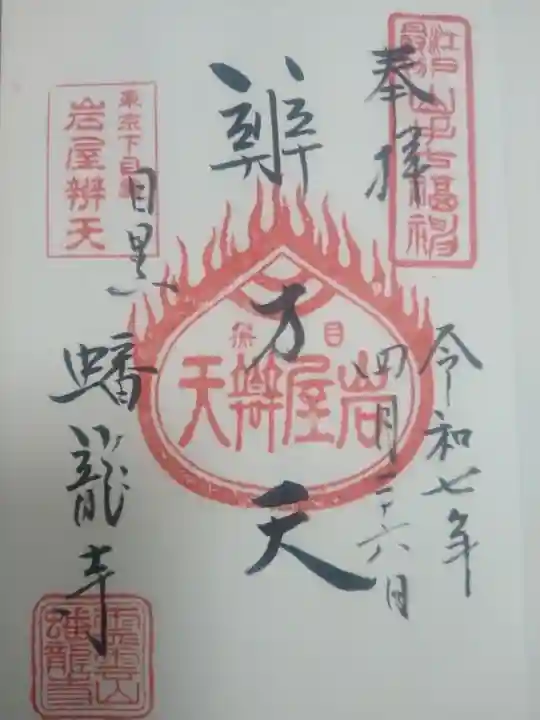 奉拝
江戸最初山手七福神
令和七年
四月二十六日
辨才天
目黒
岩屋辦天
東京下目黒
岩屋辦天
目黒 蟠龍寺
霊雲山
蟠龍寺